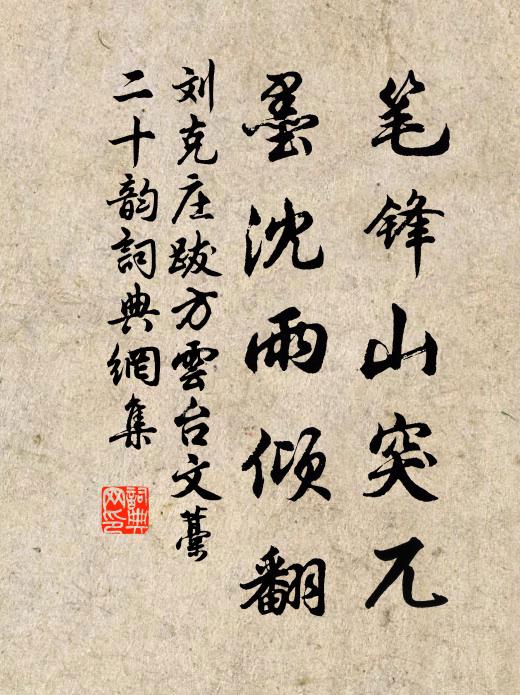 笔锋山突兀
墨沈雨倾翻
刘克庄跋方雲台文藁
二十韵詞典網集
詞典网印